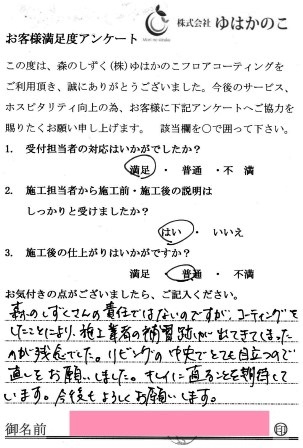 株式会社 ゆはかのこ
お客様満足度アンケート
この度は、森のしずく(株)ゆはかのこフロアコーティングを
ご利用頂き、誠にありがとうございました。今後のサービス、
ホスピタリティ向上の為、お客様に下記アンケートへご協力を
賜りたくお願い申し上げます。 該当欄を○で囲って下さい。
1. 受付担当者の対応はいかがでしたか？
満足 ・ 普通 ・ 不 満
2. 施工担当者から施工前・施工後の説明は
しっかりと受けましたか？
はい ・ いいえ
3. 施工後の仕上がりはいかがですか？
満足 ・ 普通 ・ 不 満
お気付きの点がございましたら、ご記入ください。
森のしずくさんの責任ではないのですが、コーティングを
したことにより、施工業者の補習跡が出てきてしまった
のが残念でした。リビングの中央でとても目立つので
直しをお願いしました。キレイに直ることを期待して
います。今後もよろしくお願いします。
御名前 印